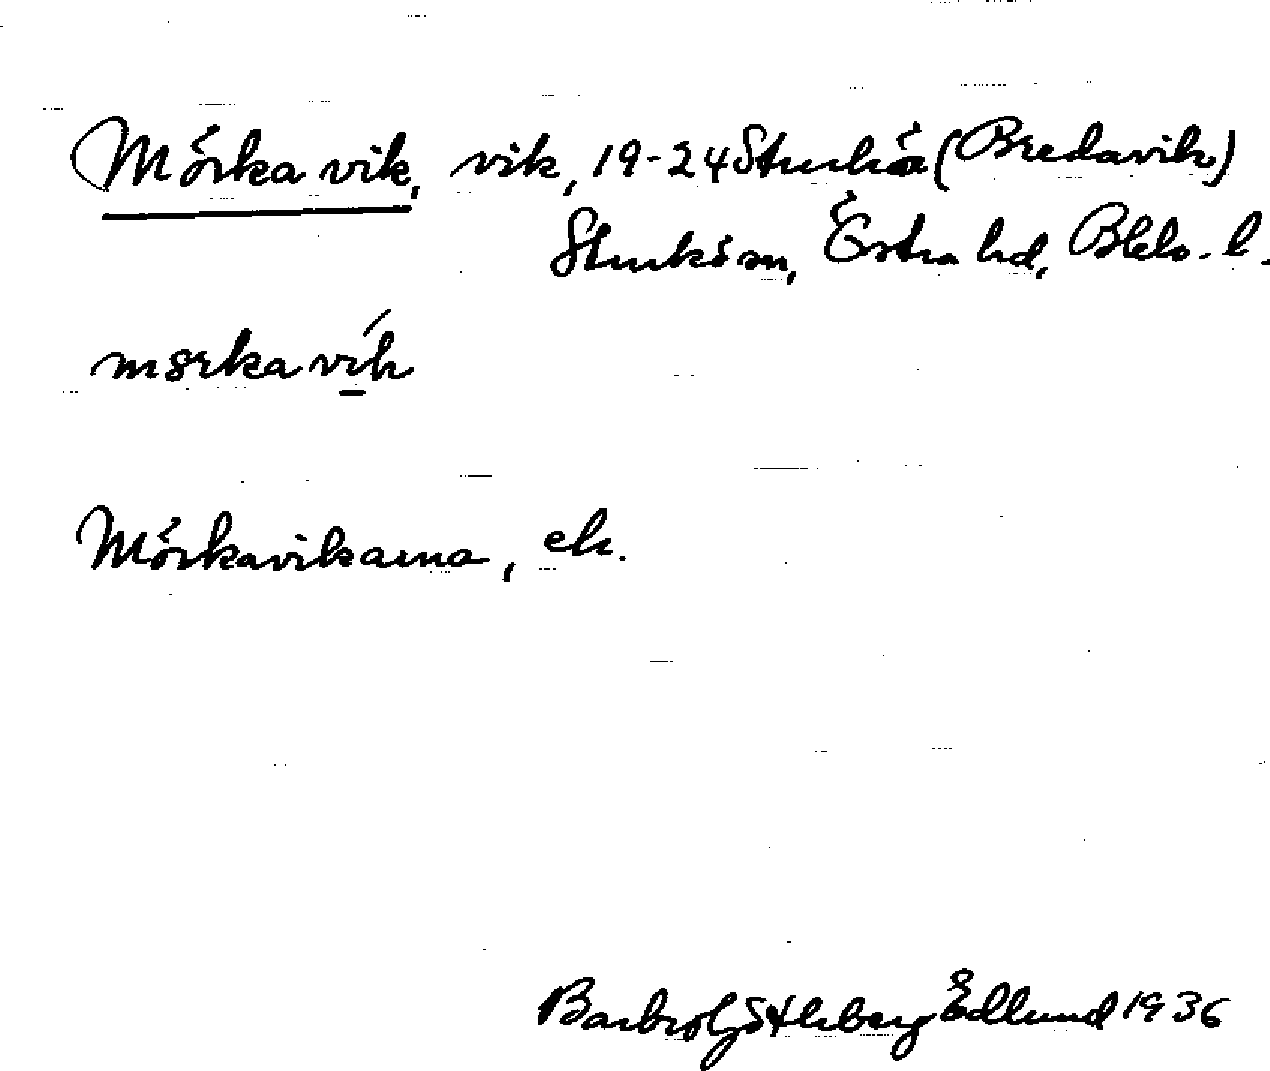 Mörka vik, vik, 19-24 Sturkö (Bredavik)
Sturkö sn, Östra hd, Blek. l.
mörka vik
Mörkavikarna, ek.
Barbro Götherberg Edlund 1936